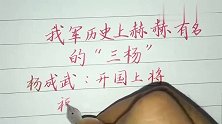 我军历史上赫赫有名
的“三杨”
杨成武：开国上将